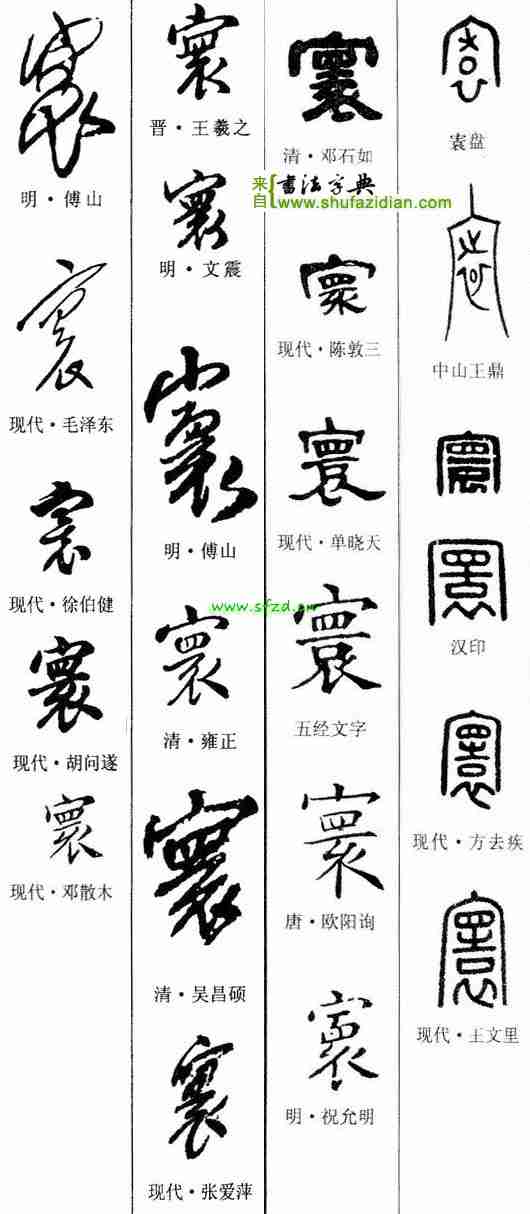 寰
明·傅山
寰
现代·毛泽东
寰
现代·徐伯健
寰
现代·胡问遂
寰
现代·邓散木
寰
晋·王羲之
寰
明·文震
寰
明·傅山
www.sfzd.cn
寰
清·雍正
寰
清·吴昌硕
寰
现代·张爱萍
寰
清·邓石如
来自 书法字典
www.shufazidian.com
寰
现代·陈敦三
寰
现代·单晓天
寰
五经文字
寰
唐·欧阳询
寰
明·祝允明
寰
寰盘
寰
中山王鼎
寰
寰
汉印
寰
现代·方去疾
寰
现代·王文里